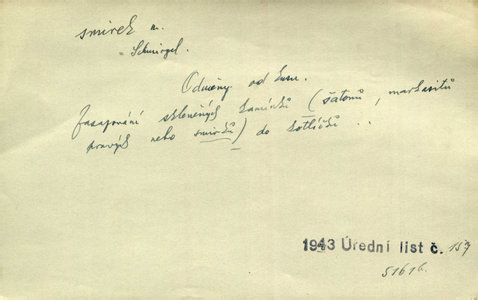 smirek m.
= Schmirgel.
Odměny od kusu.
fasapování skleněných kamínků (šatonů, markasitů
pravých nebo smirků) do kotlíčků . .
1943 Úřední list č. 157
51616.